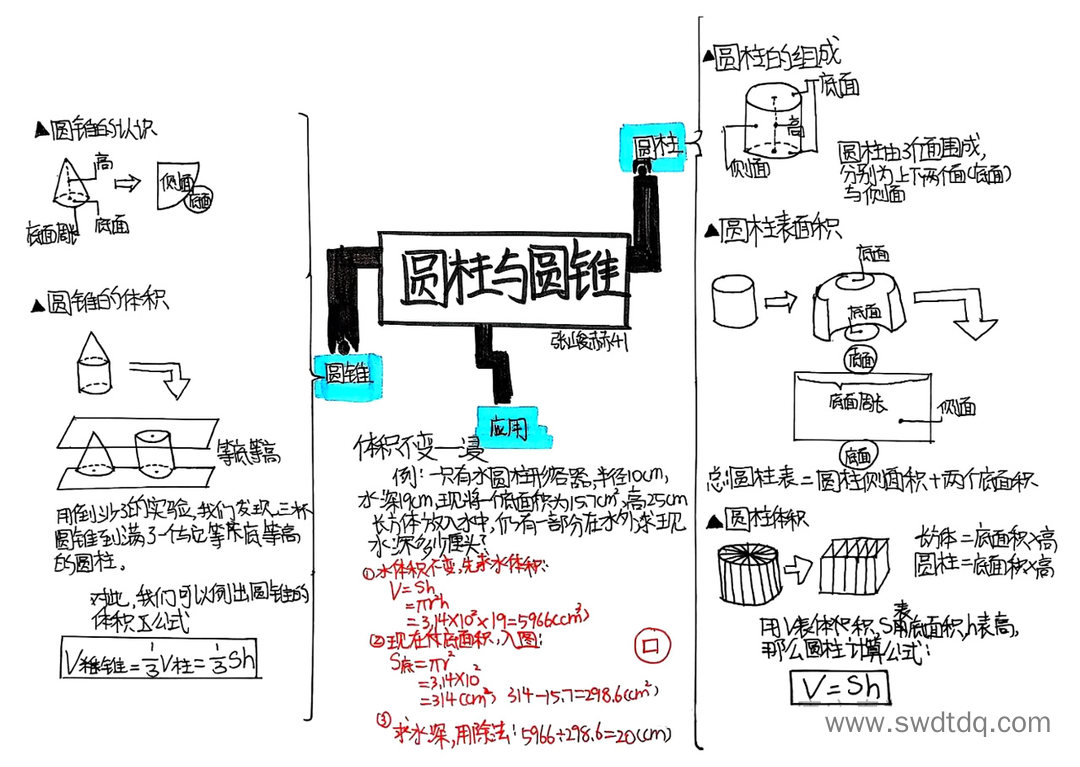 圆柱与圆锥
圆锥
▲圆锥的认识
高
侧面
底面
底面周长
底面
▲圆锥的体积
等底等高
用倒沙子的实验,我们发现三杯
圆锥到满了一个与它等底等高
的圆柱。
对此,我们可以例出圆锥的
体积公式
V锥=⅓V柱=⅓Sh
应用
体积不变—浸
例:一只有水圆柱形容器,半径10cm,
水深19cm,现将一个底面积为15.7cm²,高25cm
长方体放入水中,仍有一部分在水外,求现
水深多少厘米?
①水体积不变,先求水体积:
V=Sh
=πr²h
=3.14×10²×19=5966(cm³)
②现在作底面积,入图:
S底=πr²
=3.14×10²
=314(cm²) 314-15.7=298.6(cm²)
③求水深,用除法:5966÷298.6=20(cm)
圆柱
▲圆柱的组成
底面
高
侧面
圆柱由3个面围成,
分别为上下两个面(底面)
与侧面
▲圆柱表面积
底面
底面
底面
底面周长
侧面
底面
总:圆柱表=圆柱侧面积+两个底面积
▲圆柱体积
长方体=底面积×高
圆柱=底面积×高
用V表体积,S表底面积,h表高,
那么圆柱计算公式:
V=Sh
www.swdtdq.com